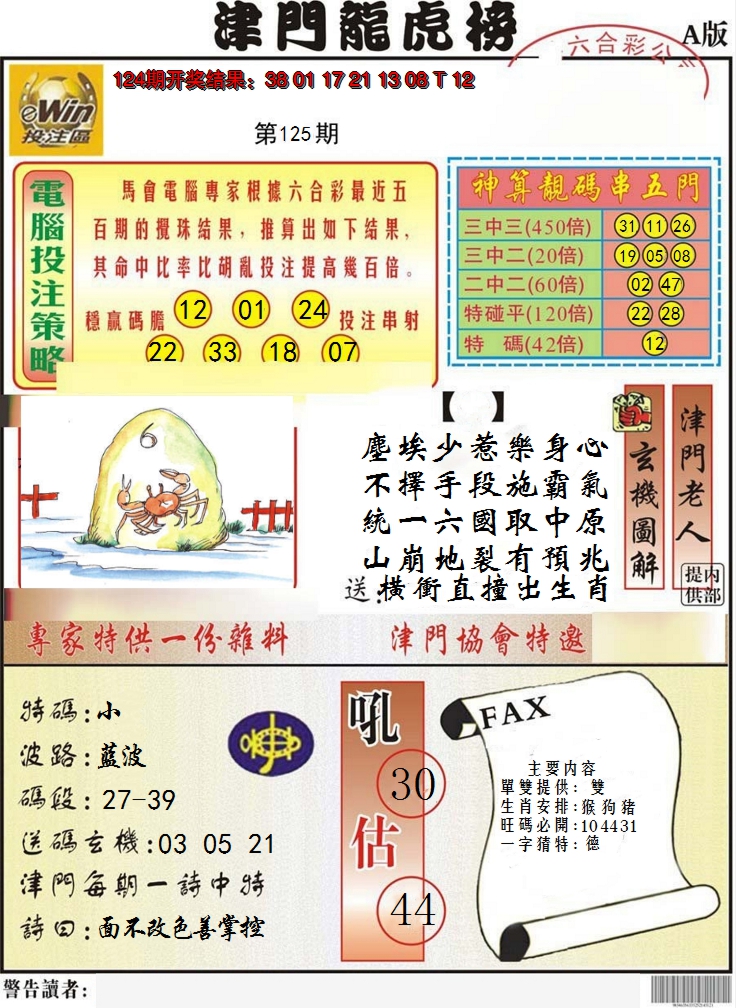 津門龍虎榜
A版
六合彩公
124期开奖结果：38 01 17 21 13 08 T 12
eWin
投注區
第125期
電腦投注策略
馬會電腦專家根據六合彩最近五
百期的攪珠结果，推算出如下结果，
其命中比率比胡亂投注提高幾百倍。
穩贏碼膽 12 01 24 投注串射
22 33 18 07
神算靚碼串五門
三中三(450倍) 31 11 26
三中二(20倍) 19 05 08
二中二(60倍) 02 47
特碰平(120倍) 22 28
特 碼(42倍) 12
6
【 】
塵埃少惹樂身心
不擇手段施霸氣
統一六國取中原
山崩地裂有預兆
送:橫衝直撞出生肖
玄機圖解
津門老人
内部提供
專家特供一份雜料
津門協會特邀
特碼:小
波路:藍波
碼段:27-39
送碼玄機:03 05 21
津門每期一詩中特
詩曰:面不改色善掌控
吼
30
估
44
FAX
主要内容
單雙提供: 雙
生肖安排:猴狗豬
旺碼必開:104431
一字猜特:德
警告讀者: